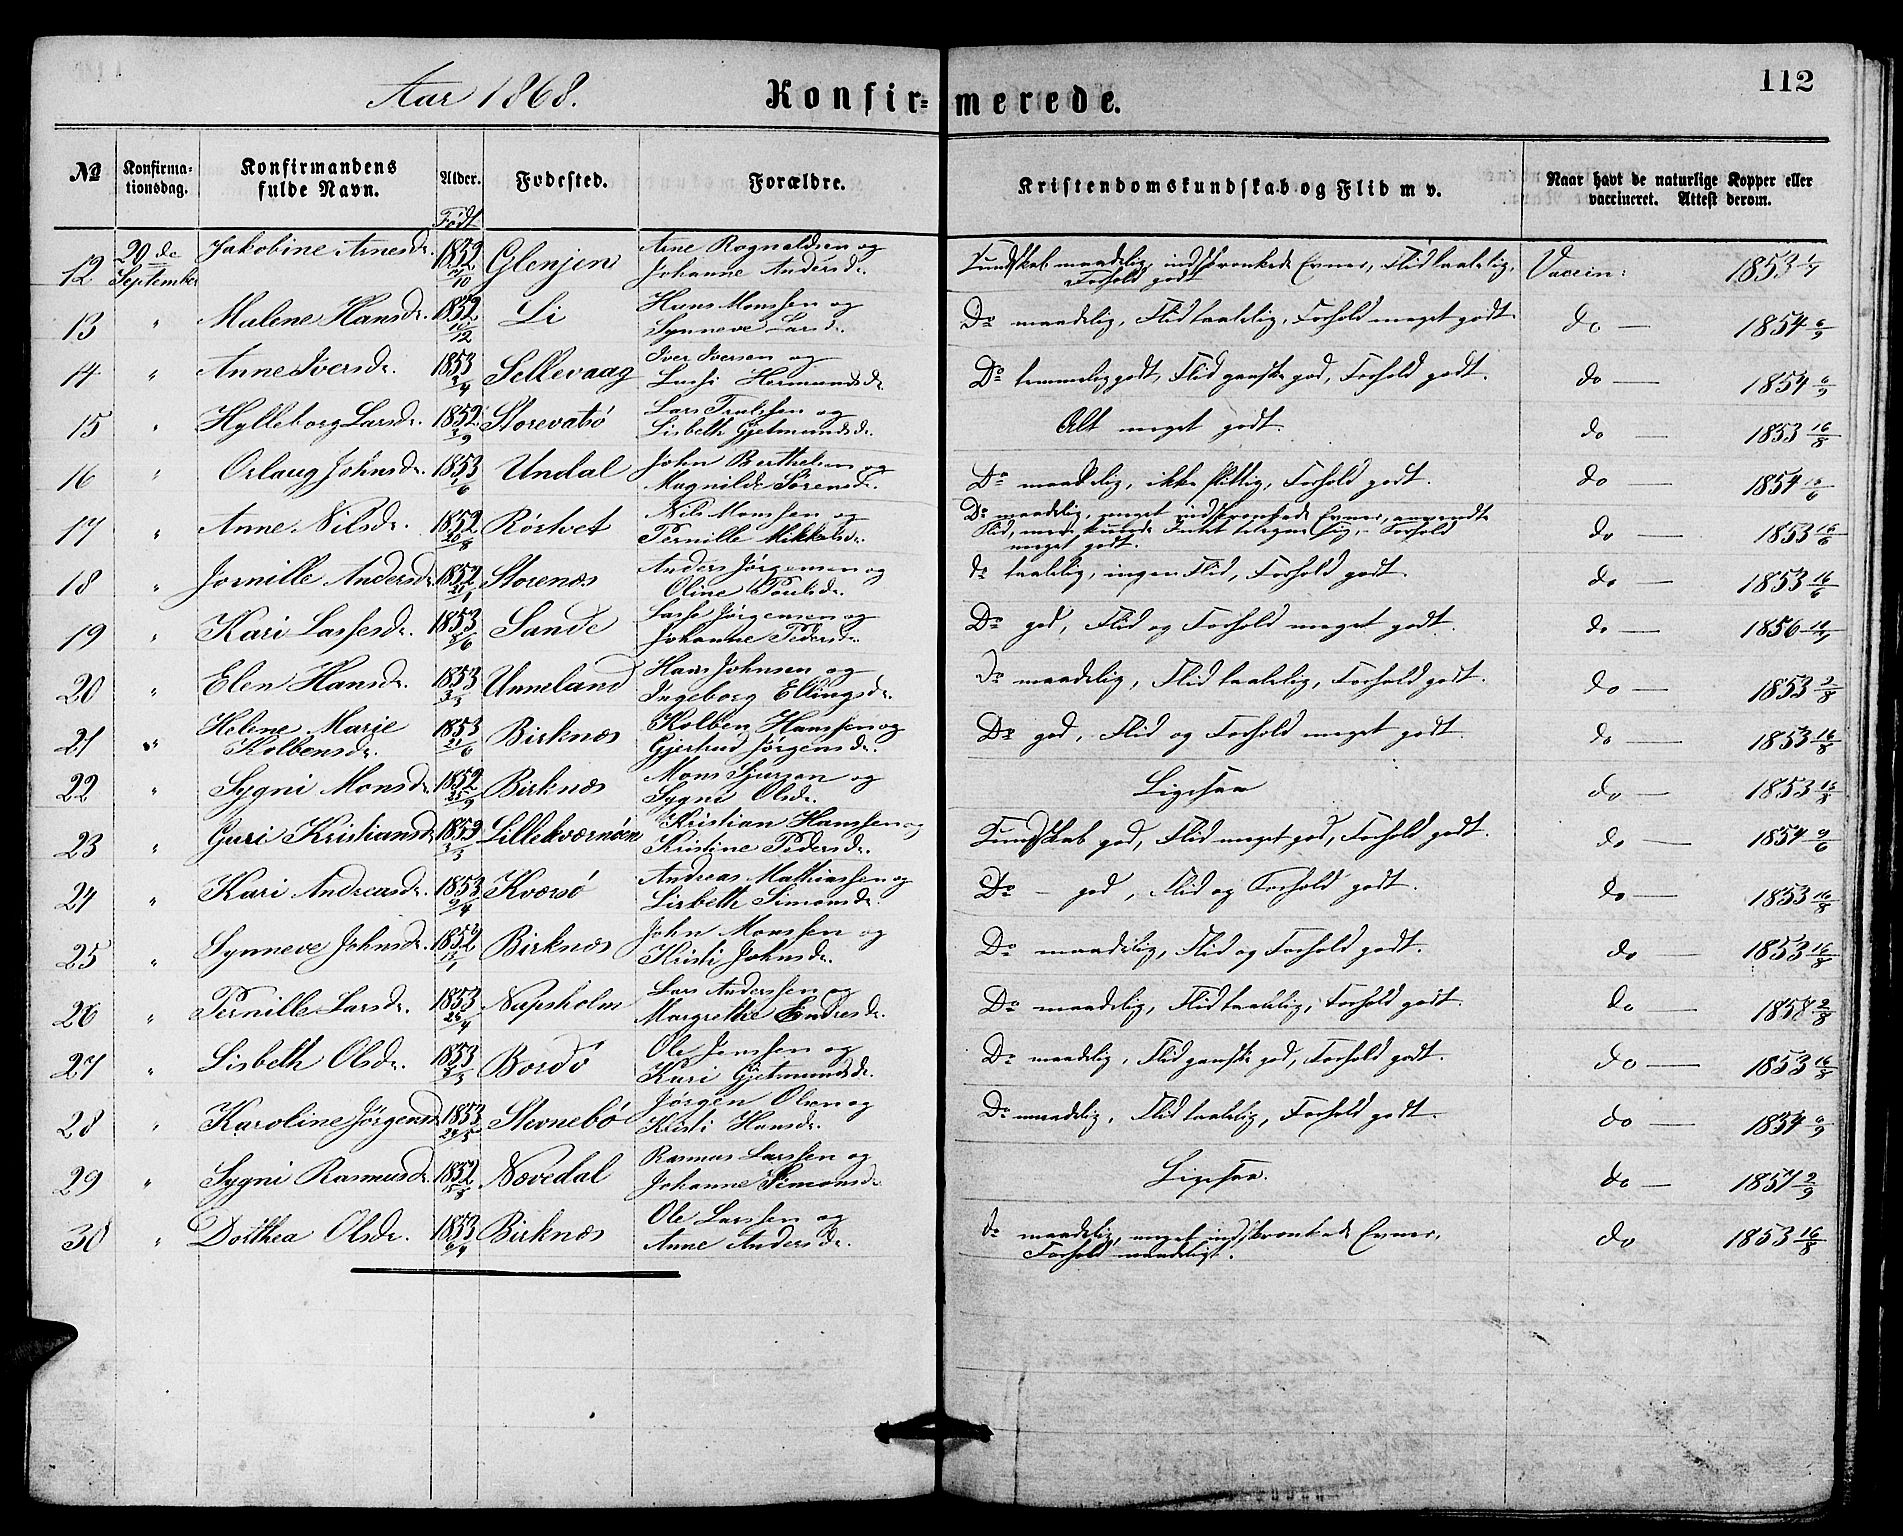 112
Aar 1868.
Konfirmerede.
№ Konfirmationsdag. Konfirmandens fulde Navn. Alder. Fødested. Forældre. Kristendomskundskab og Flid m v. Naar havt de naturlige Kopper eller vaccineret. Attest derom.
Født
12 20de September Jakobine Arnesdr. 1852 Glenjen Arne Rognaldsen og Johanne Andersdr. Kundskab maadelig, indskrænkede Evner, Flid taalelig, Forhold godt Vaccin: 1853
13 " Malene Hansdr. 1852 Li Hans Monssen og Synneve Larsdr. Do maadelig, Flid taalelig, Forhold meget godt do — 1854 6/9
14 " Anne Iversdr. 1853 3/4 Sellevaag Iver Iversen og Hermundsdr. Do temmelig godt, Flid ganske god, Forhold godt. do — 1854 6/9
15 " Hylleborg Larsdr. 1852 Storevatsö Lars Trulssen og Lisbeth Gjetmundsdr. Alt meget godt. do — 1853 16/8
16 " Orlaug Johnsdr. 1853 1/6 Undal John Berthelsen og Magnilde Sørensdr. Do maadelig, ikke flittig, Forhold godt. do — 1854
17 " Anne Nilsdr. 1852 20/8 Röstvet Nils Monssen og Pernille Mikkelsdr. Do maadelig, meget indskrænkede Evner, anvendte Flid, men kunde Intet tilegne sig, Forhold meget godt. do — 1853 16/6
18 " Jornille Andersdr. 1852 Storenæs Anders Jørgensen og Oline Poulsdr. do taalelig, ingen Flid, Forhold godt. do — 1853 16/6
19 " Kari Lassesdr. 1853 8/6 Sande Lasse Jørgensen og Johanne Pedersdr. Do god, Flid og Forhold meget godt. do — 1856
20 " Elen Hansdr. 1853 3/3 Unneland Hans Johnsen og Ingeborg Ellingsdr. Do maadelig, Flid taalelig, Forhold godt. do — 1853 2/8
21 " Helene Marie Kolbensdr. 1853 21/6 Birknæs Kolben Hanssen og Gjertrud Jørgensdr. Do god, Flid og Forhold meget godt. do — 1853 16/8
22 " Sygni Monsdr. 1852 25/9 Birknæs Mons Sjursen og Sygni Olsdr. Ligesaa do — 1853 16/8
23 " Guri Kristiansdr. Lillekvernöen Kristian Hanssen og Kristine Pedersdr. Kundskab god, Flid meget god, Forhold godt. do — 1854 9/6
24 " Kari Andreasdr. 1853 9/4 Kversö Andreas Mathiassen og Lisbeth Simonsdr. Do — god, Flid og Forhold godt. do — 1853 16/8
25 " Synneve Johnsdr. 1852 Birknæs John Monssen og Kristi Johnsdr. Do maadelig, Flid og Forhold godt. do — 1853 16/8
26 " Pernille Larsdr. 1853 26/4 Napsholm Lars Anderssen og Margrethe Endresdr. Do maadelig, Flid taalelig, Forhold godt. do — 1858 2/8
27 " Lisbeth Olsdr. 1853 Bordö Ole Jenssen og Kari Gjetmundsdr. Do maadelig, Flid ganske god, Forhold godt. do — 1853 16/8
28 " Karoline Jørgensdr. 1853 Stevnebö Jørgen Olsen og Kristi Hansdr. Do maadelig, Flid taalelig, Forhold godt. do — 1854 6/9
29 " Sygni Rasmusdr. 1852 Nævedal Rasmus Larssen og Johanne Simonsdr. Ligesaa. do — 1857 2/9
30 " Dorthea Olsdr. 1853 6/4 Birknæs Ole Larssen og Anne Andersdr. do maadelig, meget indskrænkede Evner, Forhold maadeligt. do 1853 16/8